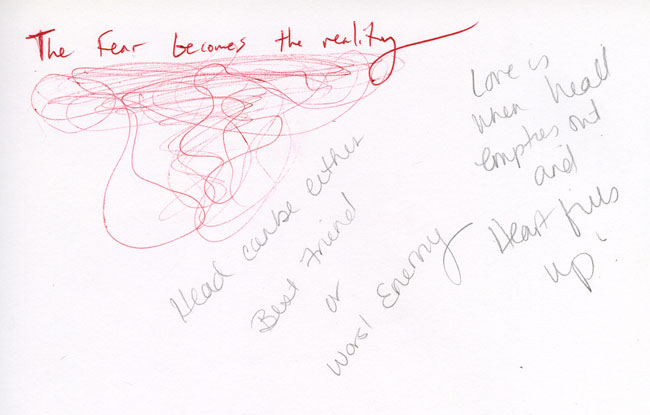 The Fear becomes the reality
Head can be either
Best Friend
or
Worst Enemy
Love is
when head
empties out
and
Heart fills
up!